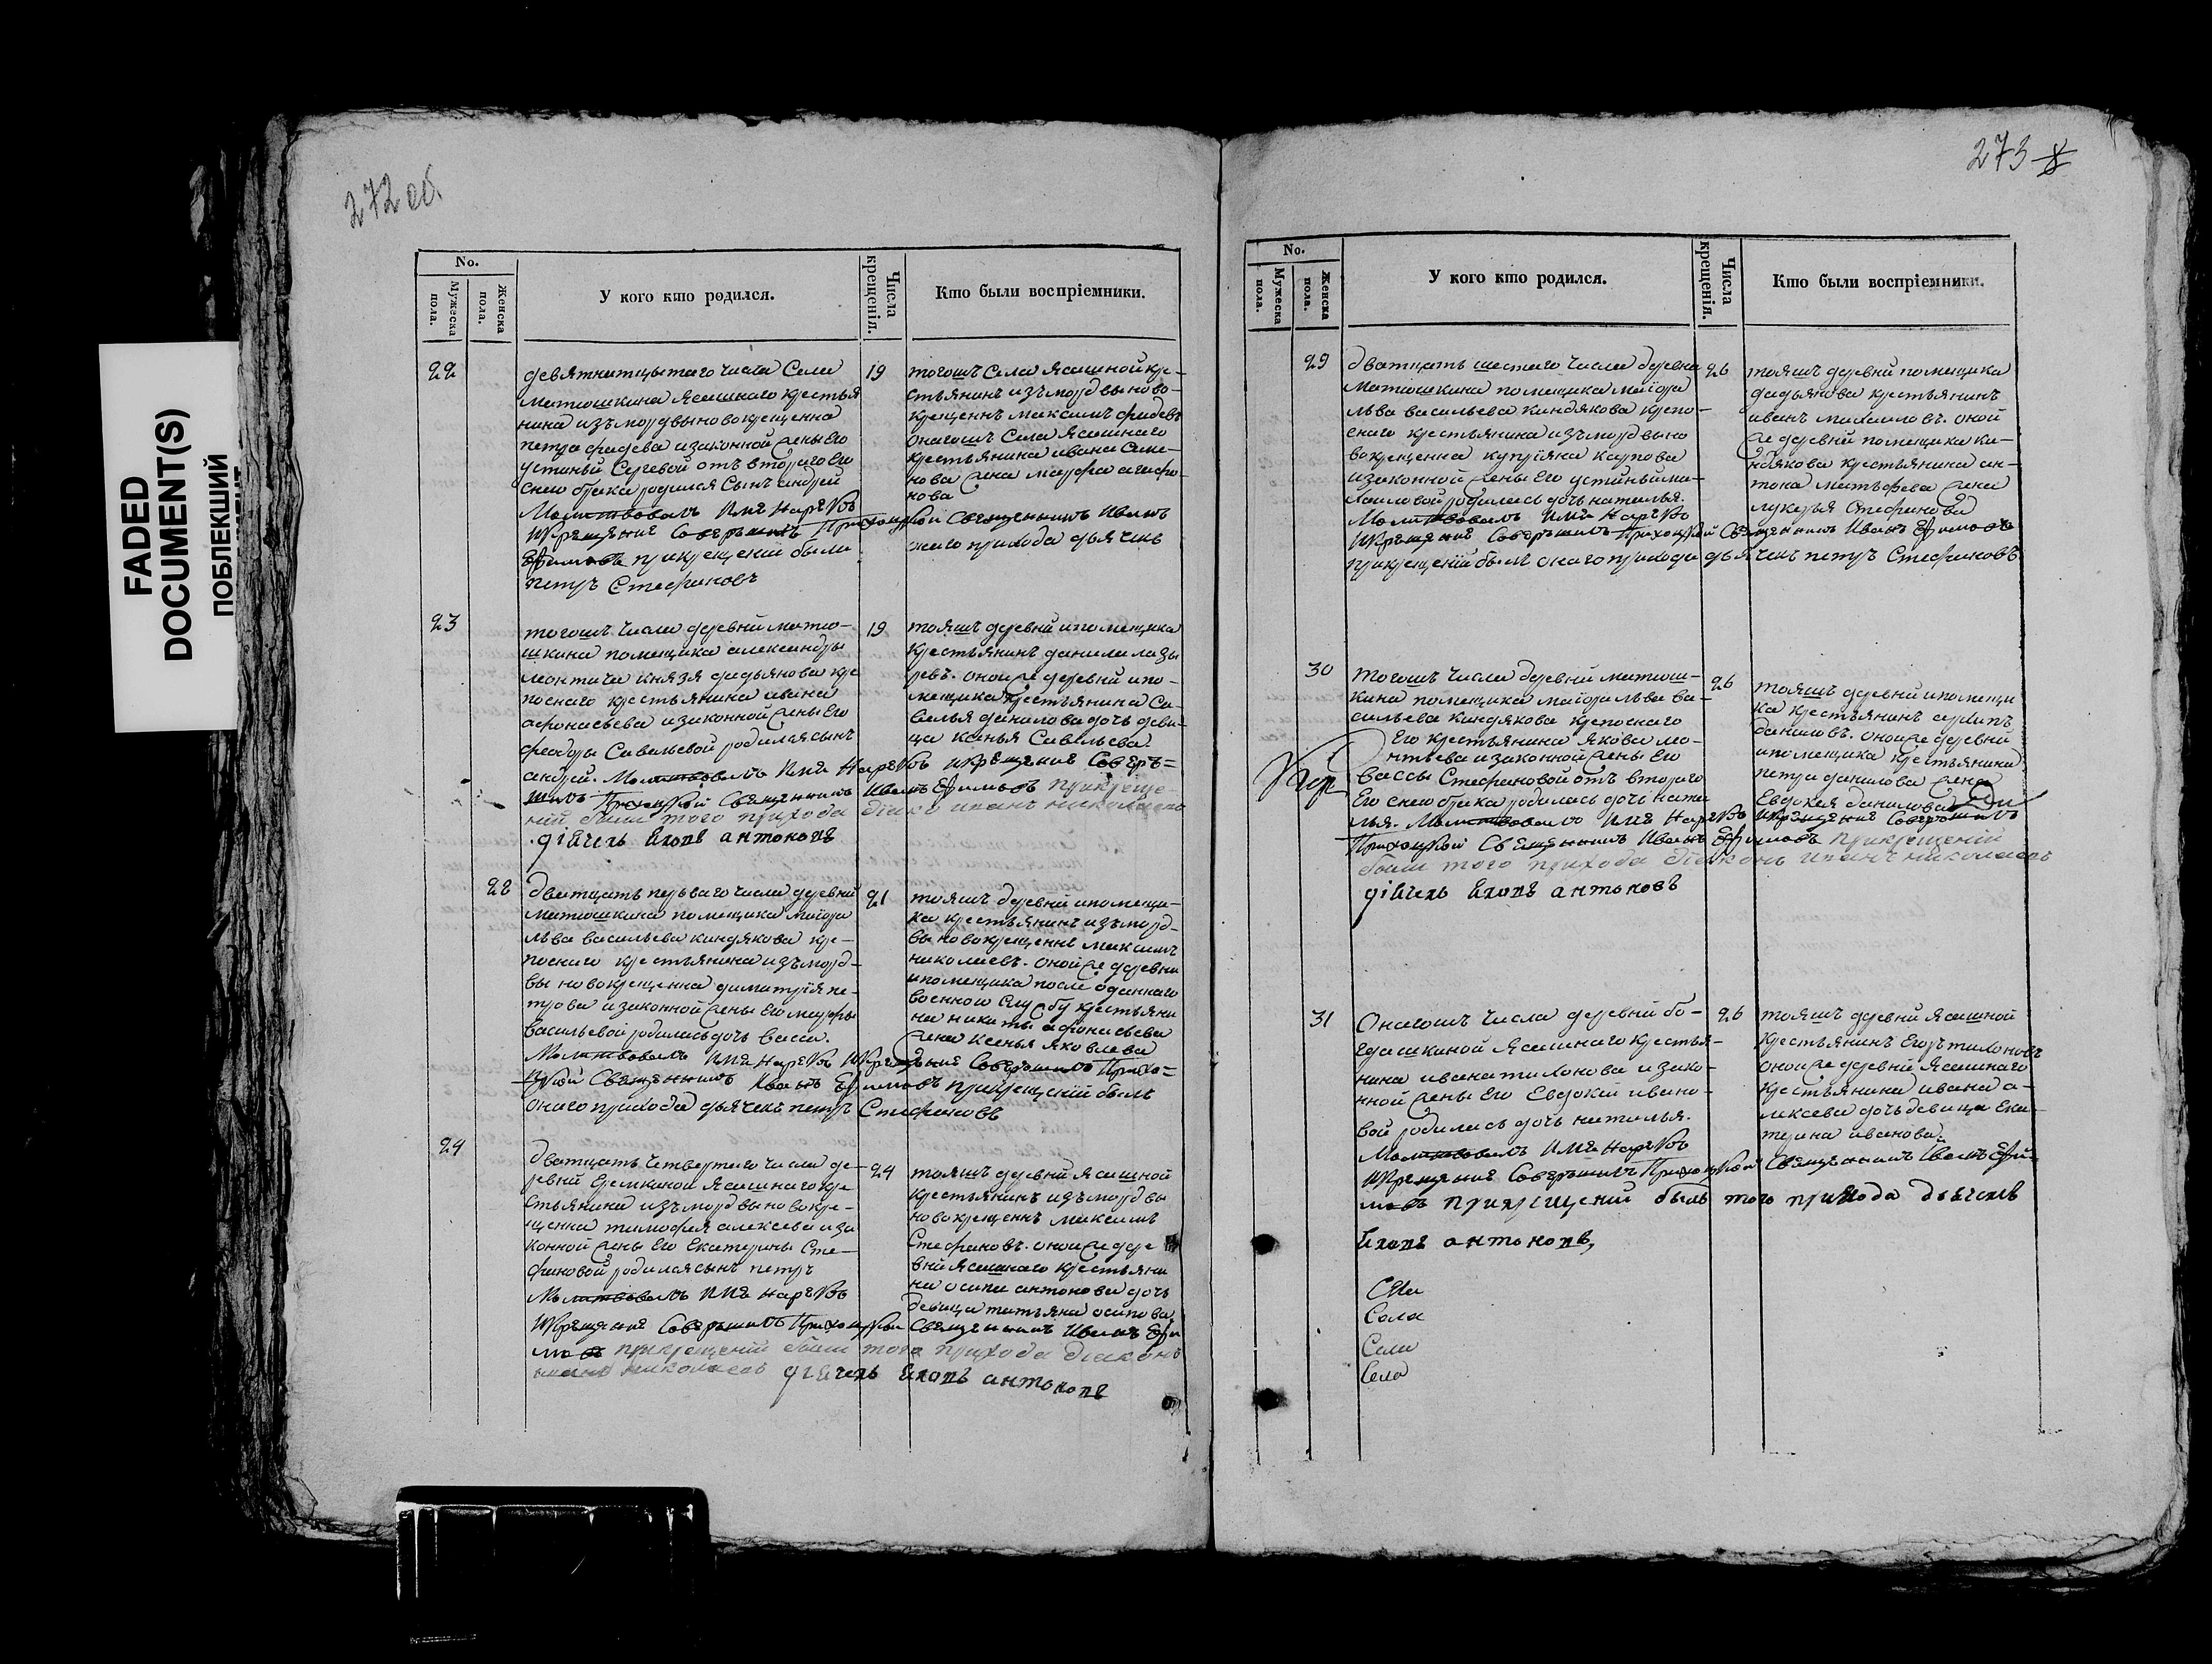 FADED
DOCUMENT(S)
ПОБЛЕКШИЙ
272 об.
No.
Мужеска пола.
Женска пола.
У кого кто родился.
Числа крещенія.
Кто были воспріемники.
22
девятнатцытаго числа Села
матюшкина Ясашнаго крестья
нина изъ мордвы новокрещенна
петра фадева изаконной жены Его
устиньи Сергевой отъ втораго Его
снею брака родился Сынъ андрей
Молитвовалъ имя Нарѣкъ
Икрещение Совершилъ Приходкой Священникъ Иванъ
Ефимовъ прикрещении были
петръ Стефановъ
19
тогошъ Села Ясашной кре-
стьянинъ изъ мордвы ново-
крещеннъ максимъ фадевъ
онагошъ Села Ясашнаго
крестьянина ивана Семе-
нова жена марфа агафо-
нова
онаго прихода дьячекъ
23
тогошъ числа деревни матю-
шкина помещика александры
леонтича князя дадьянова кре
поснаго крестьянина ивана
афонасьева изаконной жены Его
феодоры Савельевой родился сынъ
андрей. Молитвовалъ имя Нарѣкъ икрещение Совер=
шилъ Приходкой Священникъ Иванъ Ефимовъ прикреще-
нии были того прихода діаконъ иванъ николаевъ
діячекъ Іаковъ антоновъ
19
тояшъ деревни ипомещика
Крестьянинъ данила лазы
ревъ. оной же деревни ипо-
мещика крестьянина Са-
велья данилова дочь деви-
ца ксенья Савельева.
22
дватцать перьваго числа деревни
матюшкина помещика маіора
льва васильева киндякова кре-
поснаго крестьянина изъ морд-
вы новокрещенна димитрія пе-
трова изаконной жены Его марфы
васильевой родилась дочь васса.
Молитвовалъ имя Нарѣкъ Икрещение Совершилъ Прихо=
дкой Священникъ Иванъ Ефимовъ прикрещении былъ
онаго прихода дьячекъ петръ Стефановъ
21
тояшъ деревни ипомещи-
ка крестьянинъ изъ морд-
вы новокрещеннъ максимъ
николаевъ. оной же деревни
ипомещика после оданнаго
военною службу крестьяни
на никиты афонасьева
жена Ксенья яковлева
24
дватцать четвертаго числа де-
ревни Еремкиной Ясашнаго кре
стьянина изъ мордвы новокре-
щенна тимофея алексева иза
конной жены Его Екатерины Сте-
фановой родился сынъ петръ
Молитвовалъ имя Нарѣкъ
Икрещение Совершилъ Приходкой Священникъ Иванъ Ефи
мовъ прикрещении были того прихода діаконъ
иванъ николаевъ діячекъ Іаковъ антоновъ
24
тояшъ деревни Ясашной
крестьянинъ изъ мордвы
новокрещеннъ максимъ
Стефановъ. оной же дере
вни Ясашнаго крестьяни
на осипа антонова дочь
девица татьяна осипова
273
No.
Мужеска пола.
Женска пола.
У кого кто родился.
Числа крещенія.
Кто были воспріемники.
29
дватцать шестаго числа деревни
матюшкина помещика маіора
льва васильева киндякова крепо-
снаго крестьянина изъ мордвы но
вокрещенна купріяна карпова
изаконной жены Его устиньи ми-
хаиловой родилась дочь наталья.
Молитвовалъ имя Нарѣкъ
Икрещение Совершилъ Приходкой Священникъ Иванъ Ефимовъ
прикрещении былъ онаго прихода дьячекъ петръ Стефановъ
26
тояшъ деревни помещика
дадьянова крестьянинъ
иванъ михаиловъ. оной
же деревни помещика ки-
ндякова крестьянина ан-
тона матьфева жена
лукерья Стефанова
30
тогошъ числа деревни матюш-
кина помещика маіора льва ва-
сильева киндякова крепоснаго
Его крестьянина Якова ле-
онтьева изаконной жены Его
вассы Стефановой отъ втораго
Его снею брака родилась дочь ната
лья. Молитвовалъ имя Нарѣкъ икрещение Совершилъ
Приходкой Священникъ Иванъ Ефимовъ прикрещении
были того прихода діаконъ иванъ николаевъ
діячекъ Іаковъ антоновъ
26
тояшъ деревни ипомещи
ка крестьянинъ архипъ
даниловъ. оной же деревни
ипомещика крестьянина
петра данилова жена
Евдокея данилова
31
Онагошъ числа деревни бо-
гдашкиной Ясашнаго крестья-
нина ивана тихонова изако-
нной жены Его Евдокеи ивано-
вой родилась дочь наталья.
Молитвовалъ имя Нарѣкъ
Икрещение Совершилъ Приходкой Священникъ Иванъ Ефи-
мовъ прикрещении былъ того прихода дьячекъ
Іаковъ антоновъ,
26
тояшъ деревни Ясашной
крестьянинъ Егоръ тихоновъ
оной же деревни Ясашнаго
крестьянина ивана а-
лексева дочь девица Ека-
терина иванова.
Села
Села
Села